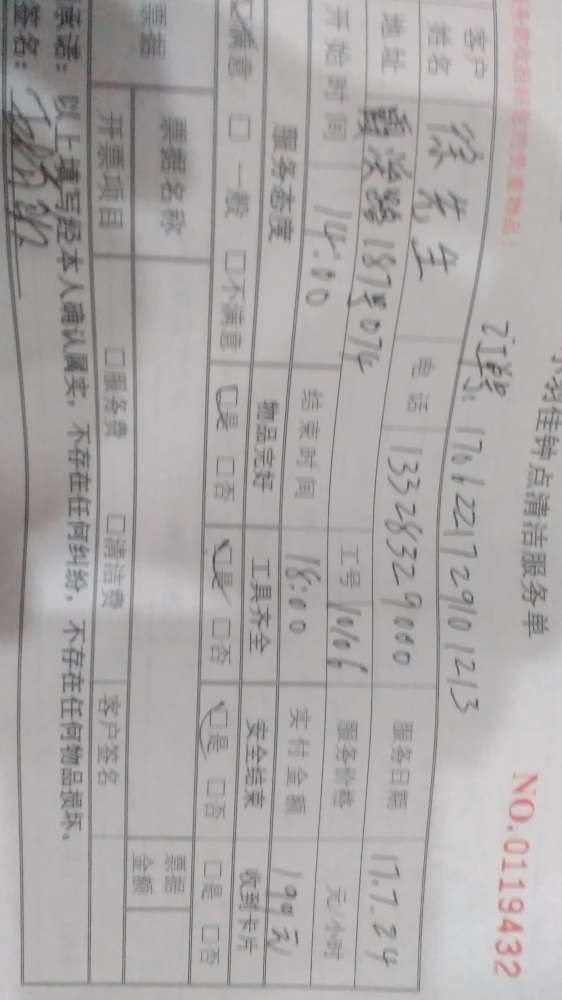 小羽佳钟点清洁服务单
NO.0119432
订单号: 1706221729101213
客户姓名 徐先生 电话 13328329000 服务日期 17.7.24
地址 霞溪路187号074 工号 10106 服务价格 元/小时
开始时间 14:00 结束时间 18:00 实付金额 199元
服务态度 物品完好 工具齐全 安全结束 收到卡片
☑满意 □一般 □不满意 ☑是 □否 ☑是 □否 ☑是 □否 □是 □否
票据 票据名称 票据金额
开票项目 □服务费 □清洁费 客户签名
承诺: 以上填写经本人确认属实, 不存在任何纠纷, 不存在任何物品损坏。
签名: